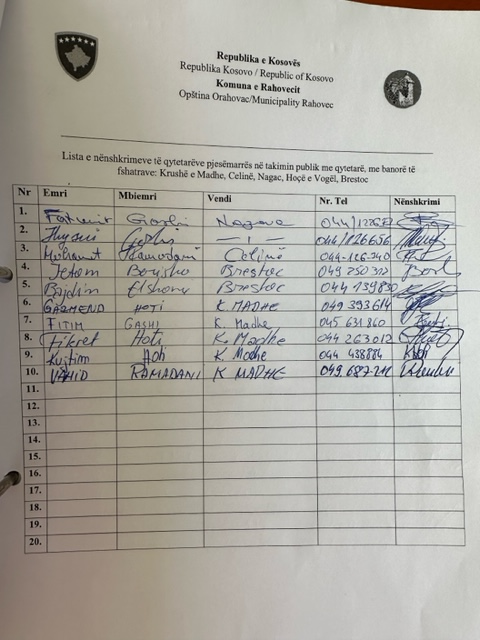 Republika e Kosovës
Republika Kosovo / Republic of Kosovo
Komuna e Rahovecit
Opština Orahovac/Municipality Rahovec
Lista e nënshkrimeve të qytetarëve pjesëmarrës në takimin publik me qytetarë, me banorë të
fshatrave: Krushë e Madhe, Celinë, Nagac, Hoçë e Vogël, Brestoc
Nr Emri Mbiemri Vendi Nr. Tel Nënshkrimi
1. Nagavc
2. 044/126656
3. Ramadani Celinë 044-126-340
4. Jeton Brestoc
5. Bajdin Elshani Brestoc
6. GAZMEND HOTI K. MADHE 049 393614
7. FITIM GASHI K. Madhe 045 631 360
8. Fikret Hoti K. Madhe 044 263 012
9. Kujtim Hoti K. Madhe 044 438884
10. VAHID RAMADANI K MADHE 049.687-211
11.
12.
13.
14.
15.
16.
17.
18.
19.
20.